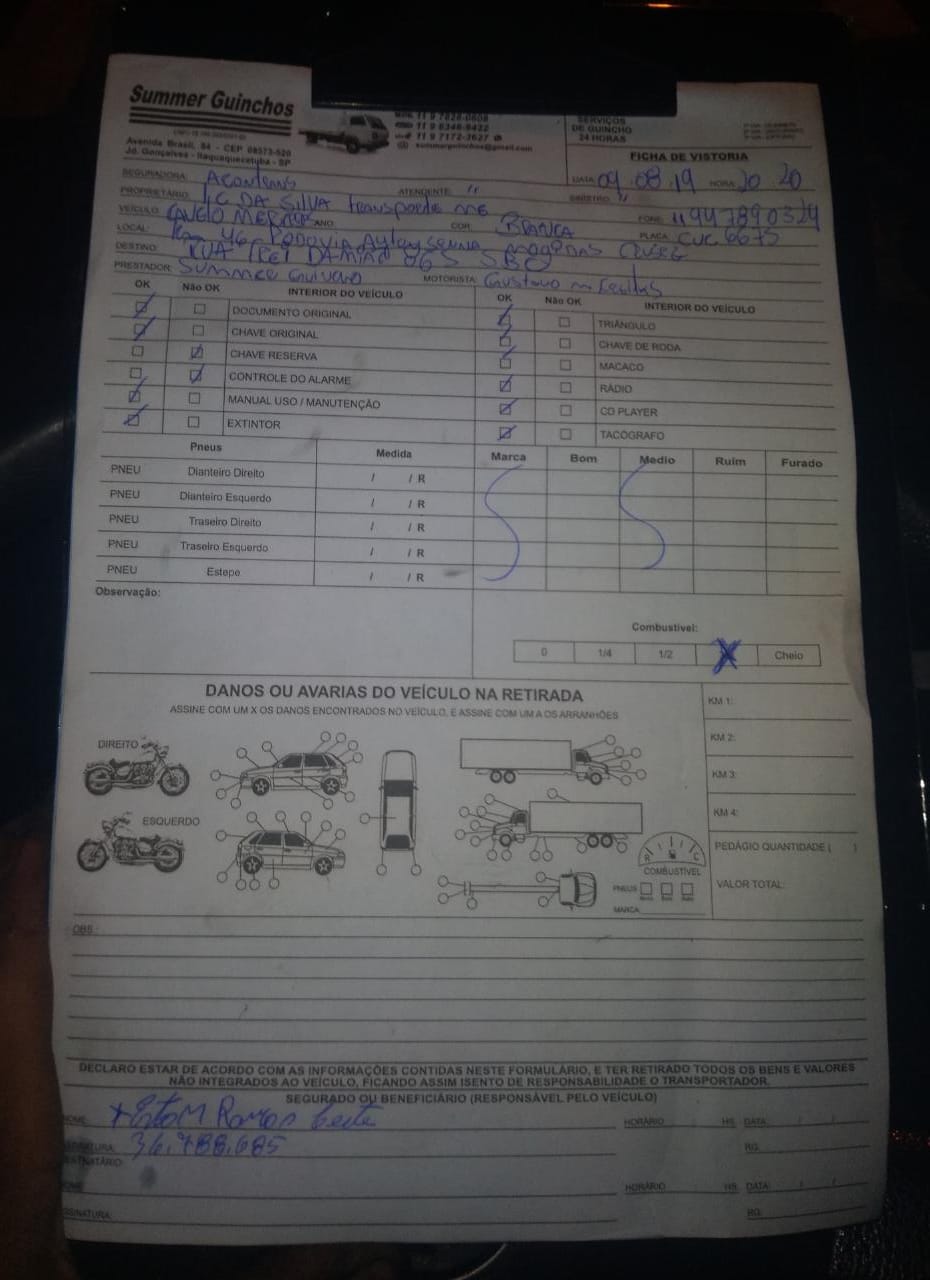 Summer Guinchos
Avenida Brasil, 84 - CEP 08573-520
Jd. Gonçalves - Itaquaquecetuba - SP
11 9 7828-0808
11 9 6346-9422
11 9 7172-3627
summerguinchos@gmail.com
SERVIÇOS
DE GUINCHO
24 HORAS
FICHA DE VISTORIA
SEGURADORA: ATENDENTE: " DATA 09.08.19 HORA 20 20
PROPRIETÁRIO: DA SILVA transporte me SINISTRO "
VEÍCULO: ANO: COR: BRANCA FONE: 11947890329
LOCAL: Km 46 Rodovia Ayrton Senna PLACA: CUC 6675
DESTINO: RUA FREI DAMIÃO 865 SBC
PRESTADOR: Summer Guincho MOTORISTA: Gustavo m Freitas
OK Não OK INTERIOR DO VEÍCULO OK Não OK INTERIOR DO VEÍCULO
DOCUMENTO ORIGINAL TRIÂNGULO
CHAVE ORIGINAL CHAVE DE RODA
CHAVE RESERVA MACACO
CONTROLE DO ALARME RÁDIO
MANUAL USO / MANUTENÇÃO CD PLAYER
EXTINTOR TACÓGRAFO
Pneus Medida Marca Bom Medio Ruim Furado
PNEU Dianteiro Direito / / R
PNEU Dianteiro Esquerdo / / R
PNEU Traseiro Direito / / R
PNEU Traseiro Esquerdo / / R
PNEU Estepe / / R
Observação:
Combustível:
0 1/4 1/2 X Cheio
DANOS OU AVARIAS DO VEÍCULO NA RETIRADA
ASSINE COM UM X OS DANOS ENCONTRADOS NO VEÍCULO, E ASSINE COM UM A OS ARRANHÕES
KM 1:
KM 2:
KM 3:
KM 4:
PEDÁGIO QUANTIDADE ( )
VALOR TOTAL:
DIREITO
ESQUERDO
COMBUSTÍVEL
PNEUS
MARCA
OBS.:
DECLARO ESTAR DE ACORDO COM AS INFORMAÇÕES CONTIDAS NESTE FORMULÁRIO, E TER RETIRADO TODOS OS BENS E VALORES
NÃO INTEGRADOS AO VEÍCULO, FICANDO ASSIM ISENTO DE RESPONSABILIDADE O TRANSPORTADOR.
SEGURADO OU BENEFICIÁRIO (RESPONSÁVEL PELO VEÍCULO)
NOME: Ramos HORÁRIO HS. DATA: / /
ASSINATURA: 36.788.685 RG:
DESTINATÁRIO:
NOME HORÁRIO HS. DATA: / /
ASSINATURA: RG: